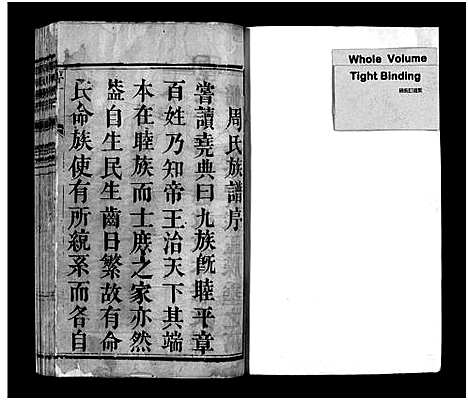 周氏族譜序
嘗讀堯典曰九族既睦平章
百姓乃知帝王治天下其端
本在睦族而士庶之家亦然
葢自生民生齒日繁故有命
氏命族使有所統系而各自
Whole Volume
Tight Binding